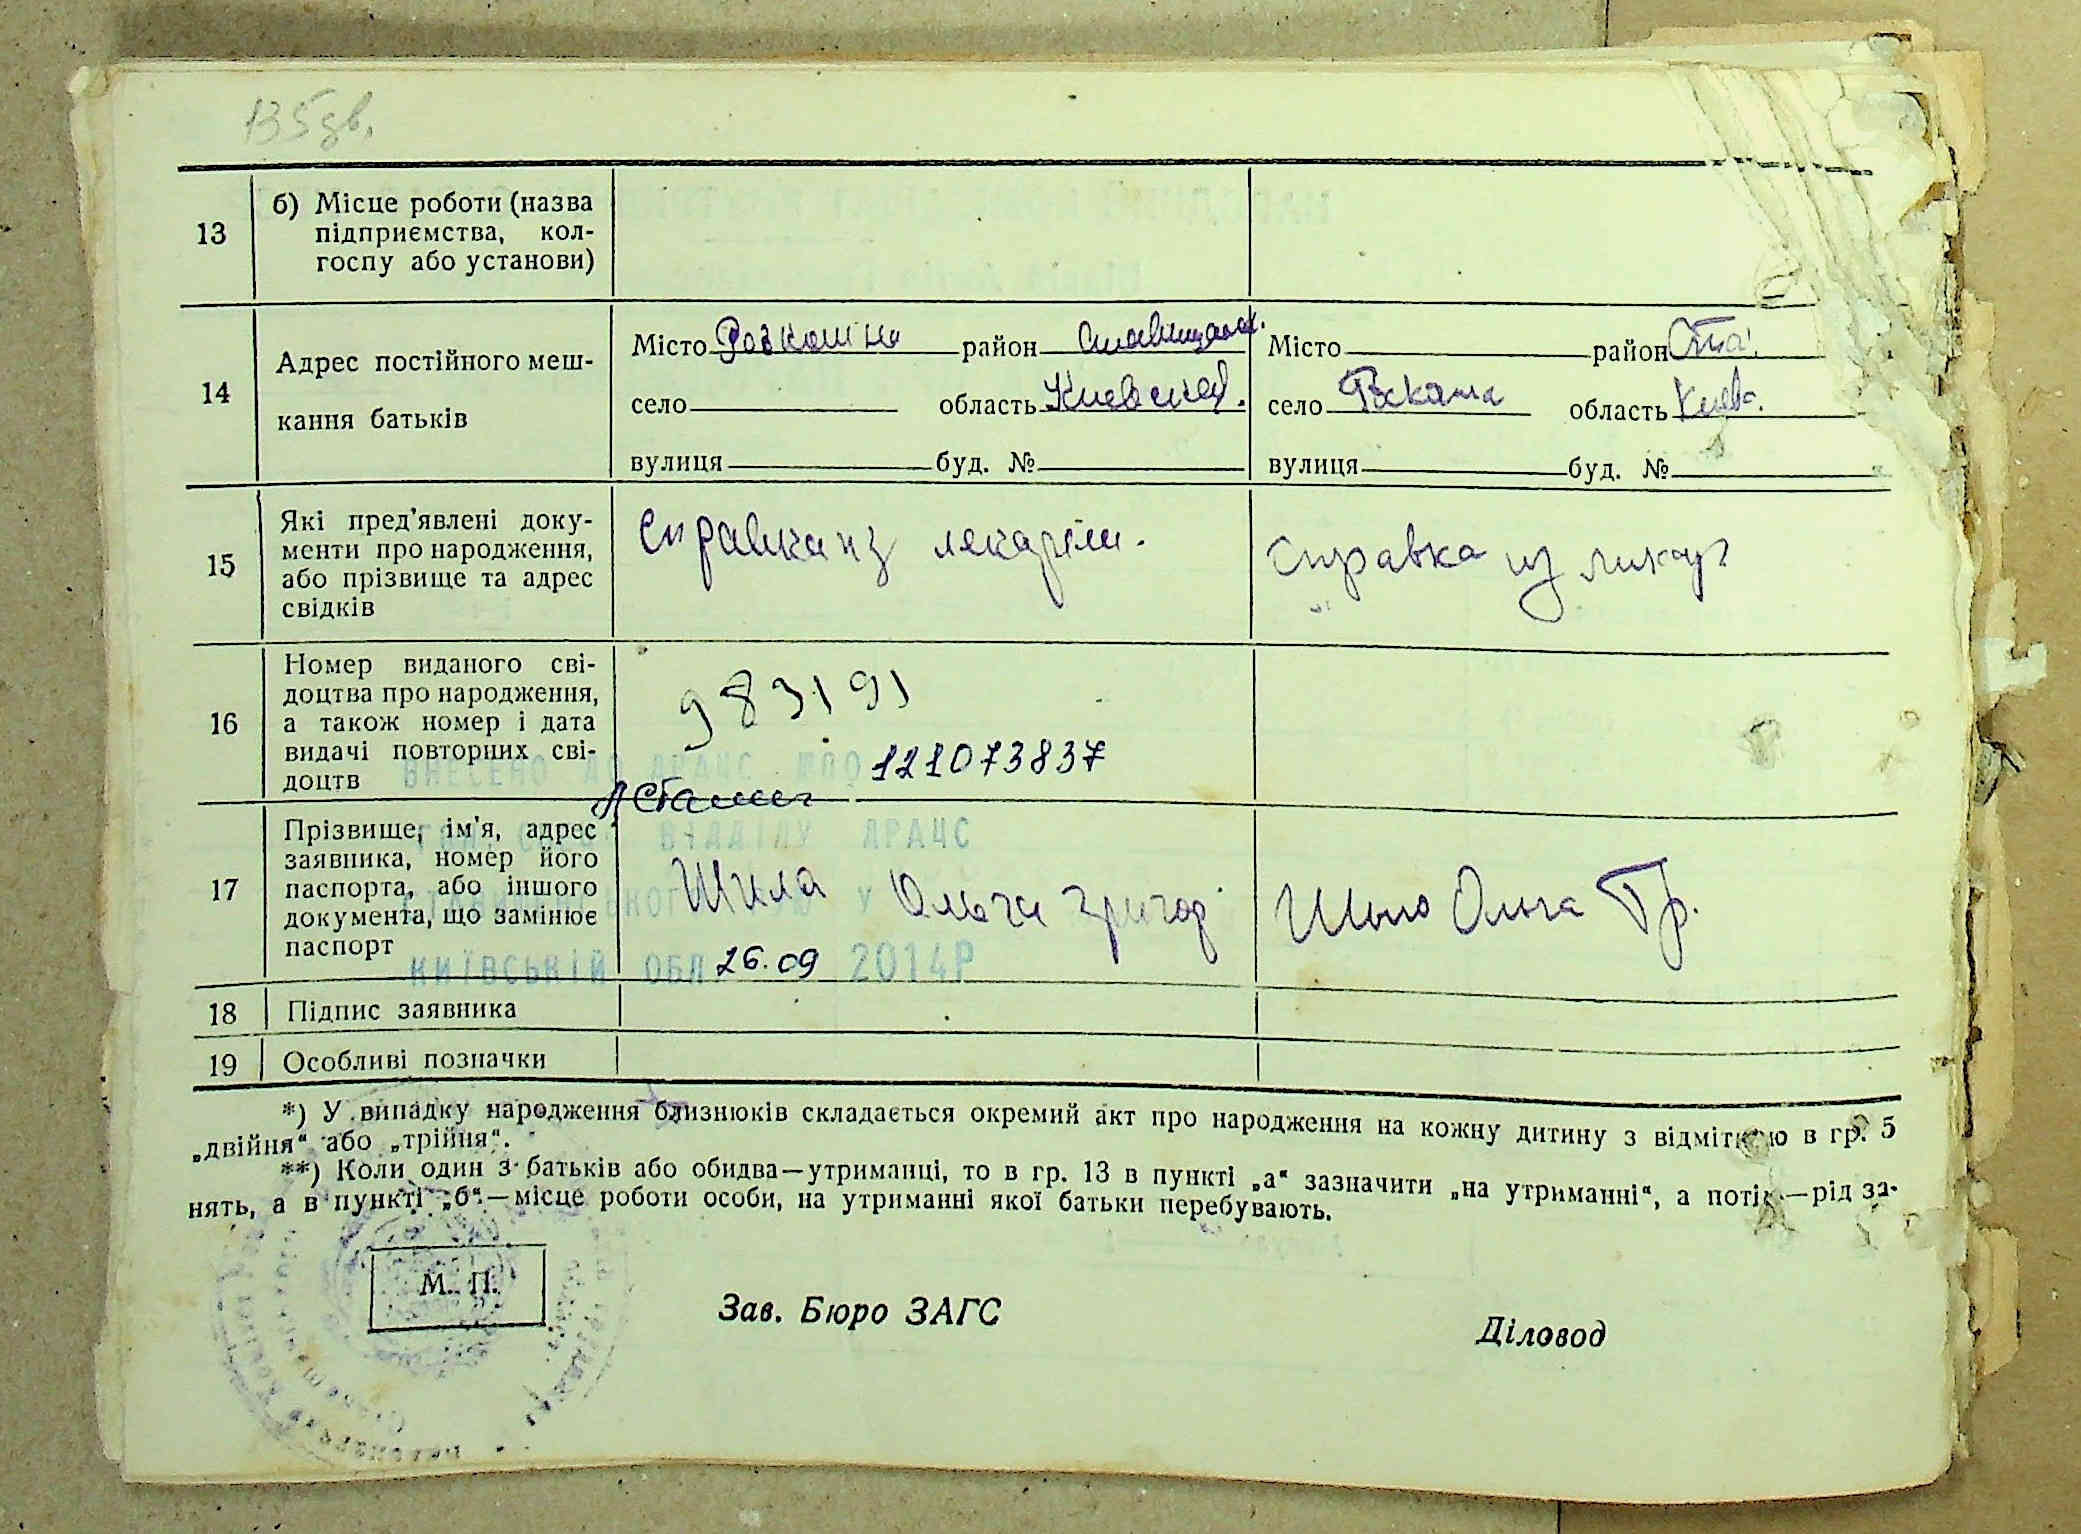 135 зв.
13 б) Місце роботи (назва
підприємства, кол-
госпу або установи)
14 Адрес постійного меш-
кання батьків
Місто Розкошна район Ставищанск.
село область Киевская.
вулиця буд. №
Місто район Ста.
село Роскаша область Києвс.
вулиця буд. №
15 Які пред'явлені доку-
менти про народження,
або прізвище та адрес
свідків
Справка из
Справка из
16 Номер виданого сві-
доцтва про народження,
а також номер і дата
видачі повторних сві-
доцтв
983191
ВНЕСЕНО ДО ДРАЦС 121073837
17 Прізвище, ім'я, адрес
заявника, номер його
паспорта, або іншого
документа, що замінює
паспорт
ВІДДІЛУ ДРАЦС
Шила Ольга Григор
Шыло Ольга Гр.
КИЇВСЬКІЙ ОБЛ. 26.09 2014Р
18 Підпис заявника
19 Особливі позначки
*) У випадку народження близнюків складається окремий акт про народження на кожну дитину з відміткою в гр. 5
„двійня“ або „трійня“.
**) Коли один з батьків або обидва—утриманці, то в гр. 13 в пункті „а“ зазначити „на утриманні“, а потім—рід за-
нять, а в пункті „б“—місце роботи особи, на утриманні якої батьки перебувають.
М. П.
Зав. Бюро ЗАГС
Діловод